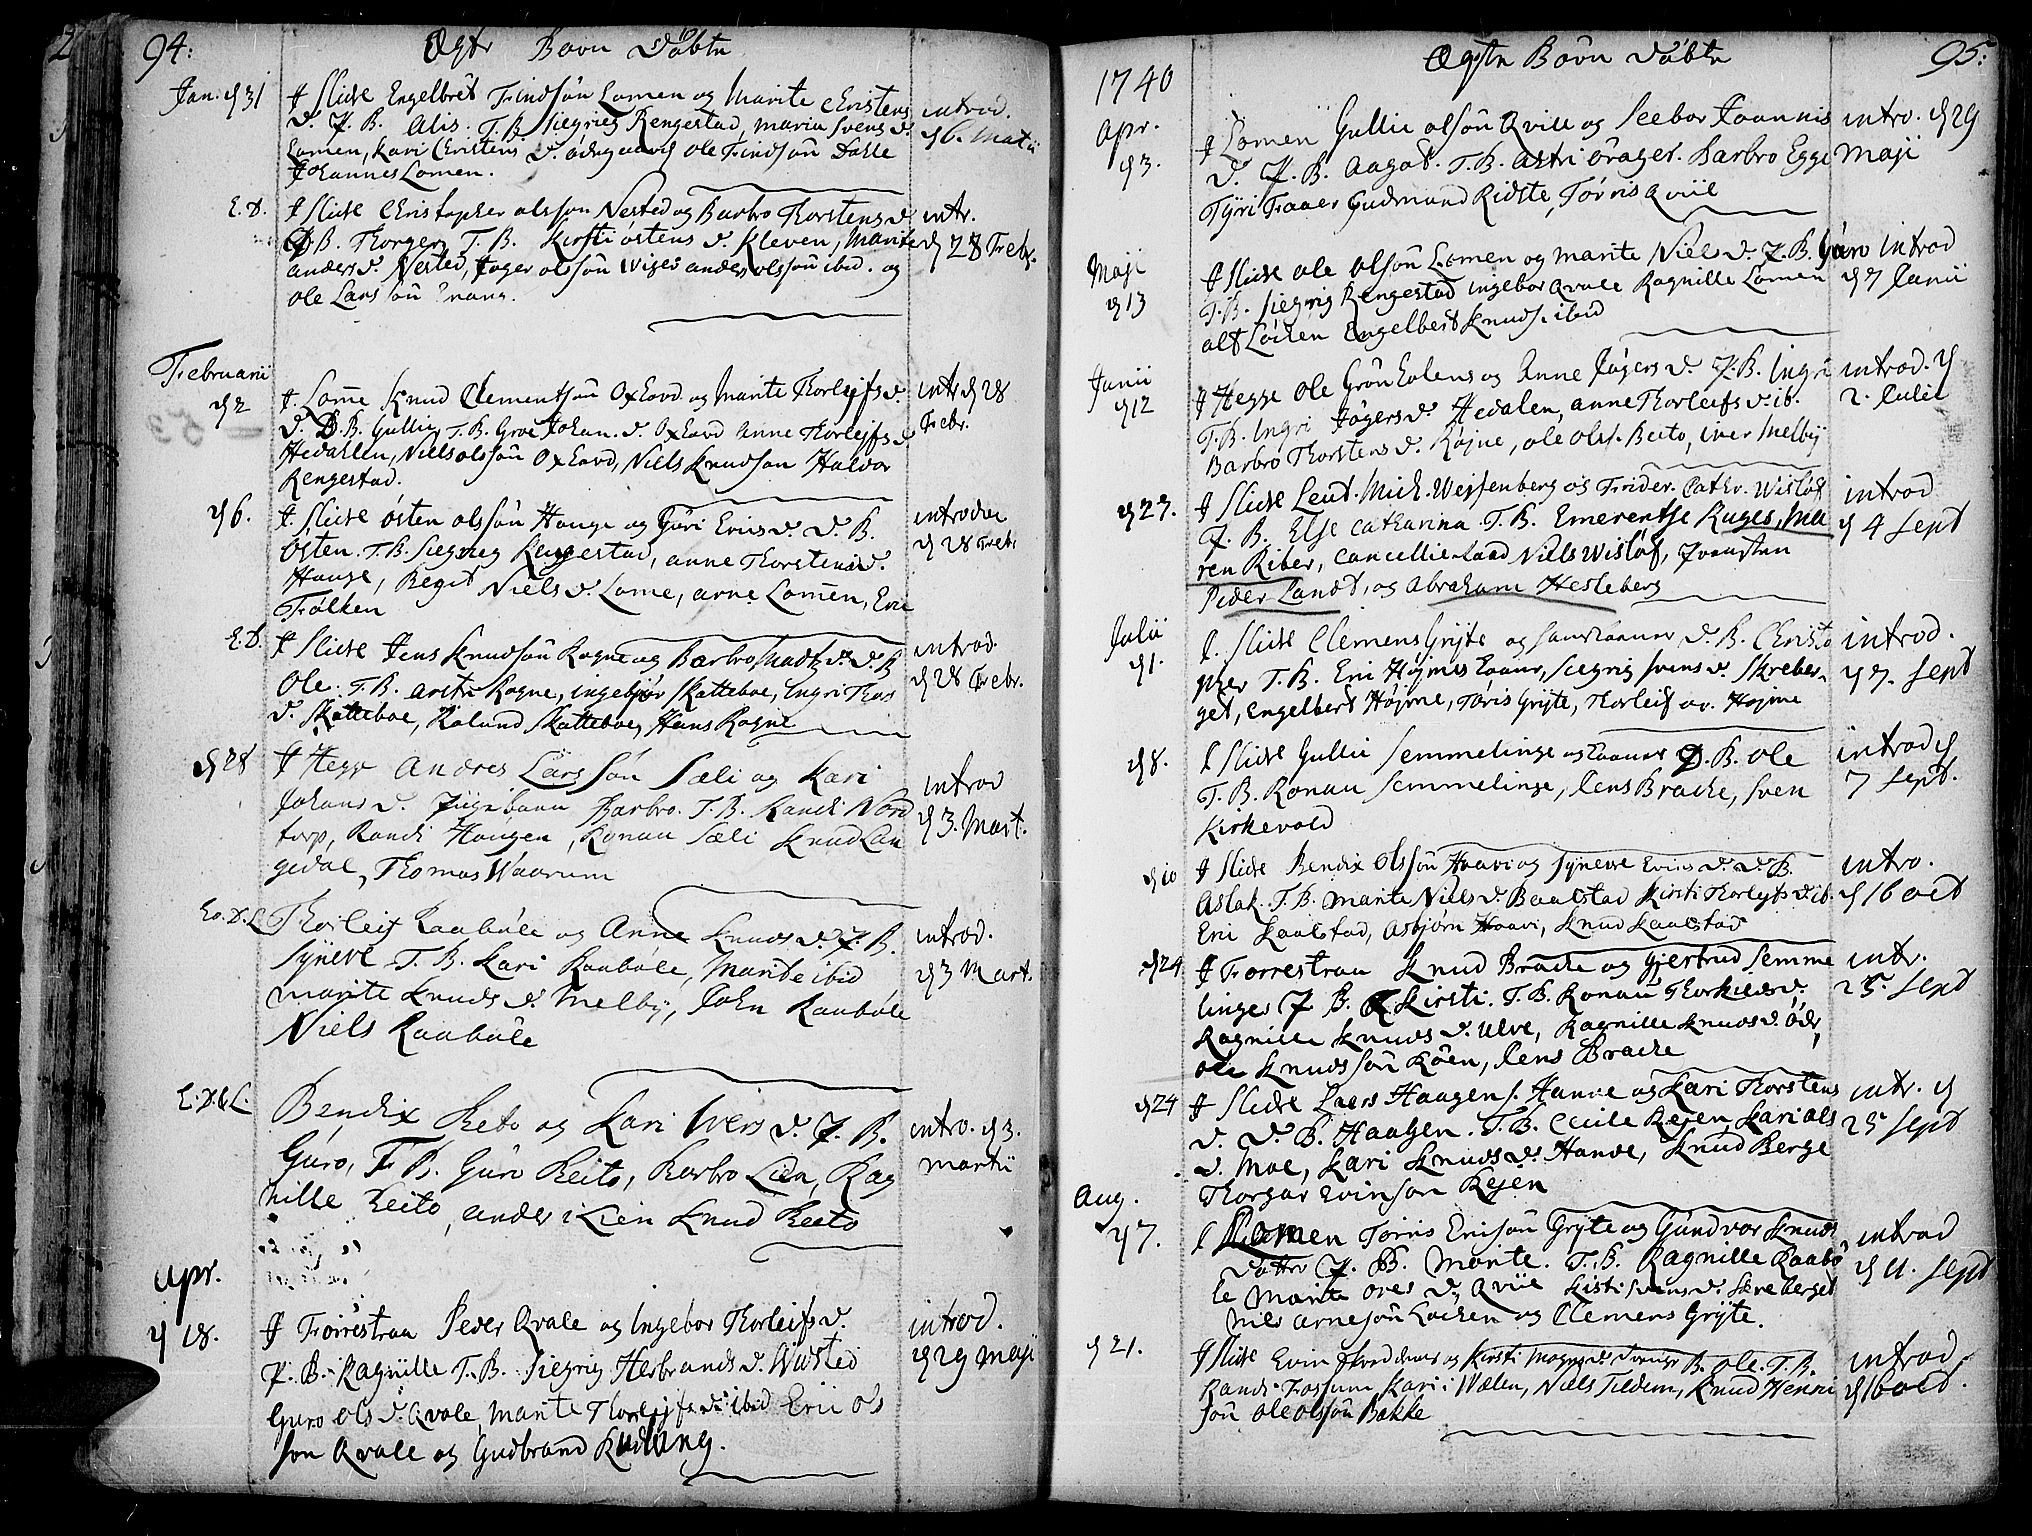 94:
Ægte Børn Døbte
Jan. d 31
J Slidre Engelbret Findsøn Lomen og Marite Christens
d. P. B. Alis. T. B. Siegrig Rengestad, Maria Svens d.
Lomen, Kari Christens d. Ødegaard Ole Findsøn Dahle
Johannes Lomen.
introd.
d 6. Martii
E. D.
J Slidre Christopher Olsøn Nested og Barbro Thorstens d.
D B. Thorger T. B. Kirsti Østens d. Kleven, Marite
Anders d. Nested, Joger Olsøn Wiger Anders Olsøn ibid. og
Ole Larssøn
intr.
d 28 Febr.
Februarii
d 2
J. Lome Knud Clementsøn Oxhovd og Marite Thorlejfs d.
D. B. Gullic, T. B. Groe Johan. d. Oxhovd Anne Thorlejfs d
Hedahlen, Niels Olssøn Oxhovd, Niels Knudsøn Haldor
Rengestad.
intr d 28
Febr.
d 6.
J. Slidre Østen Olsøn Hauge og Guri Erics d. D. B.
Østen. T. B. Siegrieg Rengestad, Anne Thorstens d.
Hauge, Begit Niels d. Lome, Arne Lomen, Eric
Følken
introduc
d 28 Febr
E. D.
J Slidre Jens Knudsøn Rogne og Barbro Madtz d. D. B
Ole. T. B. Astri Rogne, Ingebjør Skatteboe, Ingri Thor
d. Skatteboe, Roland Skatteboe, Hans Rogne
introd.
d 28 Febr.
d 28
J Hegge Andres Larssøn Sæli og Kari
Johans d. Pigebarn Barbro. T. B. Randi Nord
torp, Randi Haugen, Ronau Sæli Knud Lan
gedal, Thomas Waarum
introd
d 3. Mart.
Eo. D. L.
Thorleif Raabøle og Anne Knuds d. P. B.
Syneve. T. B. Kari Raabøle, Marite ibid
Marite Knuds d. Melby, John Raabøle
Niels Raabøle
introd.
d 3 Mart.
E. D. & L.
Bendix Beto og Kari Ivers d. P. B.
Guro, F. B. Guro Beito, Barbro Lien, Rag
nille Beito, Anders Lien Knud Beito
intro. d 3.
Martii
Apr.
d 18.
J Forrestraa Peder Qvale og Ingebor Thorleifs d.
P. B. Ragnille T. B. Siegrig Herbrands d. Wusted
Guro Ols d. Qvale, Marite Thorlejfs d. ibid Eric Ols
søn Qvale og Gudbrand Rudung.
introd.
d 29 Maji
95:
Ægte Børn Døbte
1740
Apr.
d 3.
J Lomen Gullic Olsøn Qvile og Seebor Joannis
d. P. B. Aagot. T. B. Astri Brager. Barbro Egge
Tyri Fraaer Gudmund Ridste, Torris Qviil
intro. d 29
Maji
Maji
d 13
J Slidre Ole Olsøn Lomen og Marite Niels d. P. B. Guro
T. B. Siegrig Rengestad Ingebor Qvale Ragnille Lomen
Alf Løcken Engelbert Knuds. ibid
introd
d 7 Junii
Junii
d 12
J Hegge Ole Grønholens og Anne Jøgers d. P. B. Ingri
T. B. Ingri Jøgers d. Hedalen, Anne Thorleifs d. ib.
Barbro Thorstens d. Røjne, Ole Ols. Beito, Iver Melby
introd. d
2. Julii
d 27.
J Slidre Leut. Mich. Wejsenberg og Frider. Cathr. Wisløf
P. B. Else Catharina. T. B. Emerentse Ruges, Ma
ren Riber, Cancellie-Raad Niels Wisløf, Proust en
Peder Landt, og Abraham Hesleberg
introd
d 4 Sept
Julii
d 1.
J. Slidre Clemens Grijte og D. B. Christo
pher T. B. Eri Højmis Siegrig Svens d. Skreber-
get, Engelbert Højme, Toris Grijte, Thorleif Højme
introd.
d 7. Sept
d 8.
J Slidre Gullic Semmelinge og D. B. Ole
T. B. Ronau Semmelinge, Jens Bracke, Sven
Kirkevold
introd d
7 Sept.
d 10
J Slidre Bendix Olssøn Haavi og Syneve Erics d. D. B.
Aslak. T. B. Marite Niels d. Baalstad Kirsti Thorlejfs d ib.
Eric Kaalstad, Asbjørn Haavi, Knud Kaalstad
intro.
d 16 Oct
d 24
J Forrestraa Knud Bracke og Gjertrud Semme
linges P. B. Kirsti. T. B. Ronau Thorkilds d.
Ragnille Knuds d. Ulve, Ragnille Knuds d. Øde,
Ole Knudssøn Køen, Jens Bracke
intr.
25 Sept
d 24
J Slidre Laers Haagens. Hande og Kari Thorstens
d. D. B. Haagen. T. B. Cecile Rejen, Kari Ols
d. Moe, Kari Knuds d. Hande, Knud Berge
Thorgar Evinsøn Rejen
intr. d
25 Sept
Aug.
d 7.
J Lomen Torris Ericsøn Grijte og Gundvor Knuds
datter P. B. Marite. T. B. Ragnille Raabø
le Marite Ores d. Qviie Kisti Svens d. Skreberget
Niels Arnesøn Løcken og Clemens Grijte.
introd
d 11. Sept
d 21.
J Slidre Evin og Kirsti Magns d. B. Ole. T. B.
Randi Fossum Kari i Wælen, Niels Tildem, Knud Henri
søn Ole Olssøn Bakke
introd
d 16 Oct.